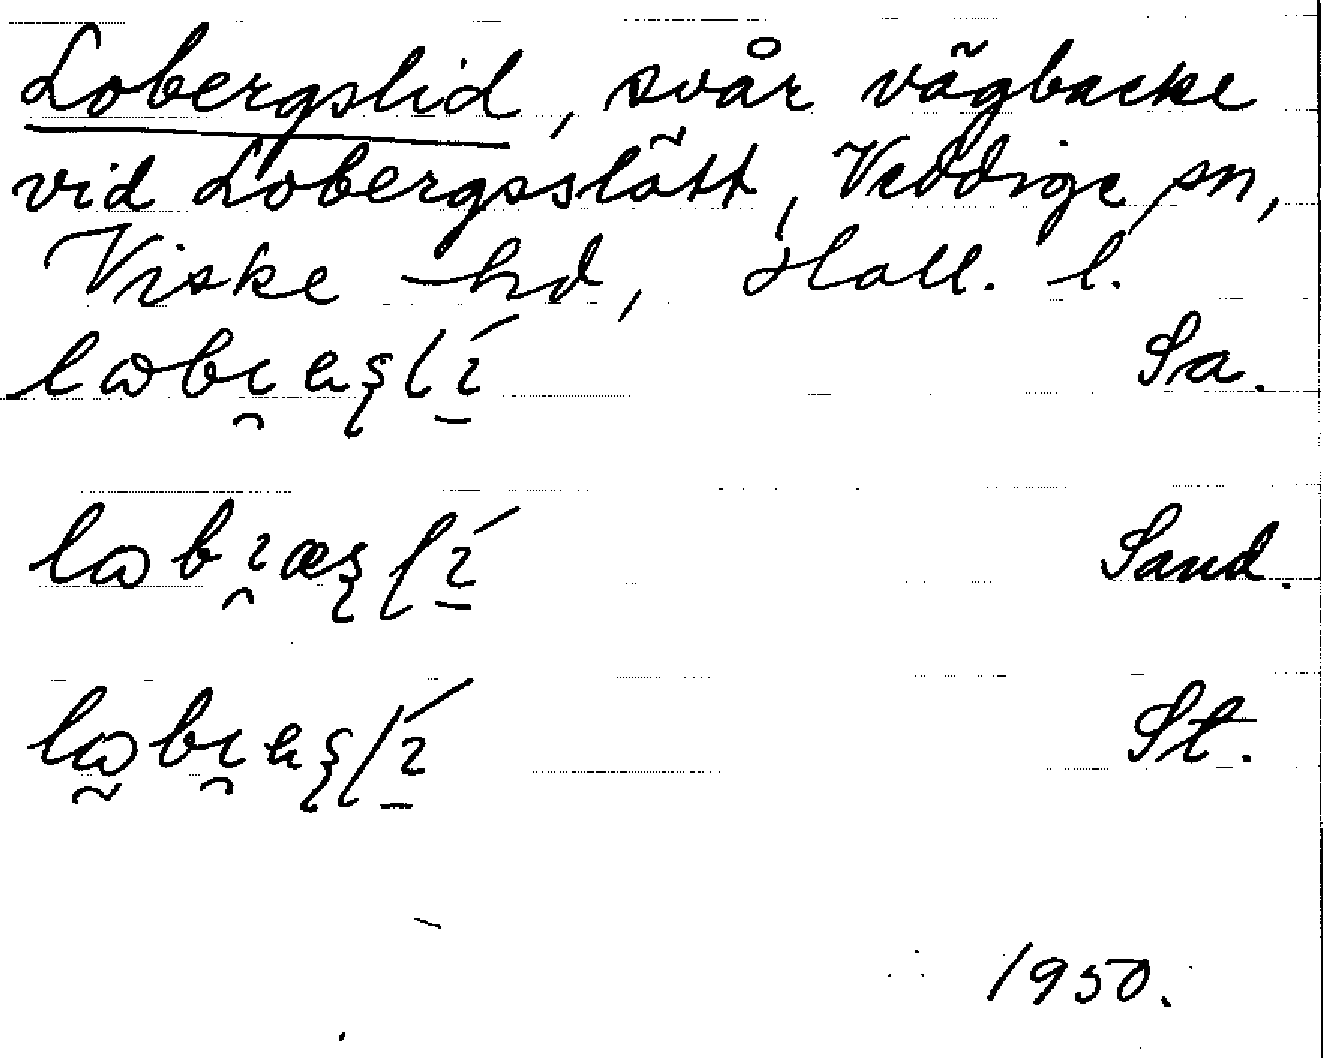 Lobergslid, svår vägbacke
vid Lobergsslätt, Veddige sn,
Viske hd, Hall. l.
Sa.
Sand.
St.
1950.